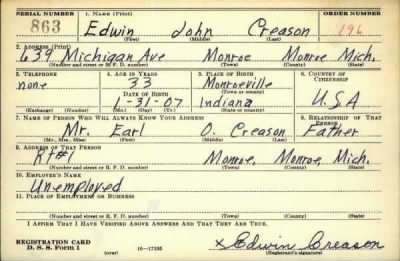 SERIAL NUMBER 1. NAME (Print) ORDER NUMBER
863 Edwin John Creason 196
(First) (Middle) (Last)
2. ADDRESS (Print)
639 Michigan Ave Monroe Monroe Mich.
(Number and street or R. F. D. number) (Town) (County) (State)
3. TELEPHONE 4. AGE IN YEARS 5. PLACE OF BIRTH 6. COUNTRY OF CITIZENSHIP
none 33 Monroeville
DATE OF BIRTH (Town or county)
1-31-07 Indiana U.S.A
(Exchange) (Number) (Mo.) (Day) (Yr.) (State or country)
7. NAME OF PERSON WHO WILL ALWAYS KNOW YOUR ADDRESS 8. RELATIONSHIP OF THAT PERSON
Mr. Earl O. Creason Father
(Mr., Mrs., Miss) (First) (Middle) (Last)
9. ADDRESS OF THAT PERSON
Rt#1 Monroe, Monroe, Mich.
(Number and street or R. F. D. number) (Town) (County) (State)
10. EMPLOYER'S NAME
Unemployed
11. PLACE OF EMPLOYMENT OR BUSINESS
(Number and street or R. F. D. number) (Town) (County) (State)
I AFFIRM THAT I HAVE VERIFIED ABOVE ANSWERS AND THAT THEY ARE TRUE.
REGISTRATION CARD
D. S. S. Form 1 (over) 16—17105 x Edwin Creason
(Registrant's signature)